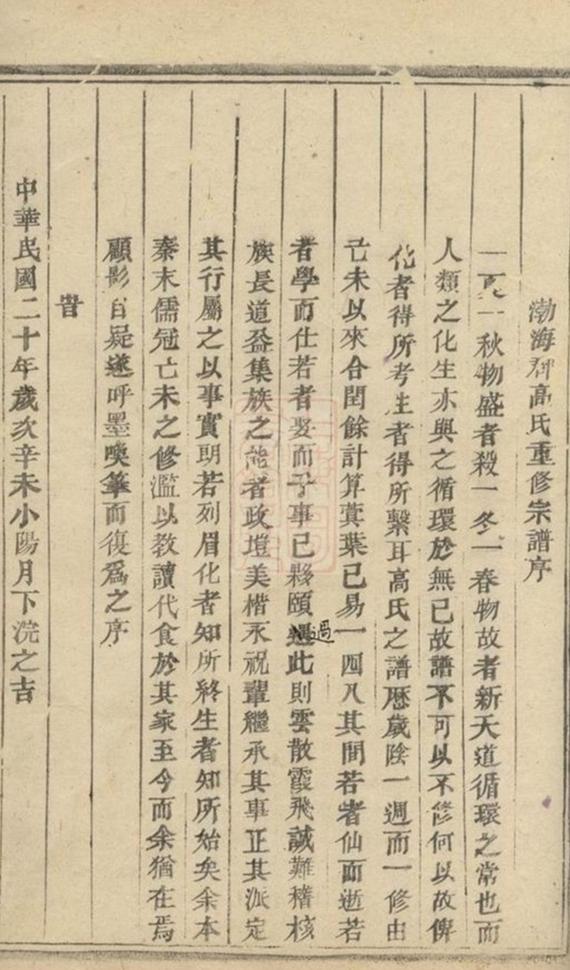 渤海郡高氏重修宗譜序
一夏一秋物盛者殺一冬一春物故者新天道循環之常也而
人類之化生亦與之循環於無已故譜不可以不修何以故俾
化者得所考生者得所繫耳高氏之譜歷歲陰一週而一修由
己未以來合閏餘計算蓂葉已易一四八其間若者仙而逝若
者學而仕若者娶而子事已夥頤過此則雲散霞飛誠難稽核
族長道益集族之能者政塏美楷永祝輩繼承其事正其派定
其行屬之以事實明若列眉化者知所終生者知所始矣余本
秦末儒冠亡未之修濫以教讀代食於其家至今而余猶在焉
顧影自疑遂呼墨喚筆而復為之序
旹
中華民國二十年歲次辛未小陽月下浣之吉